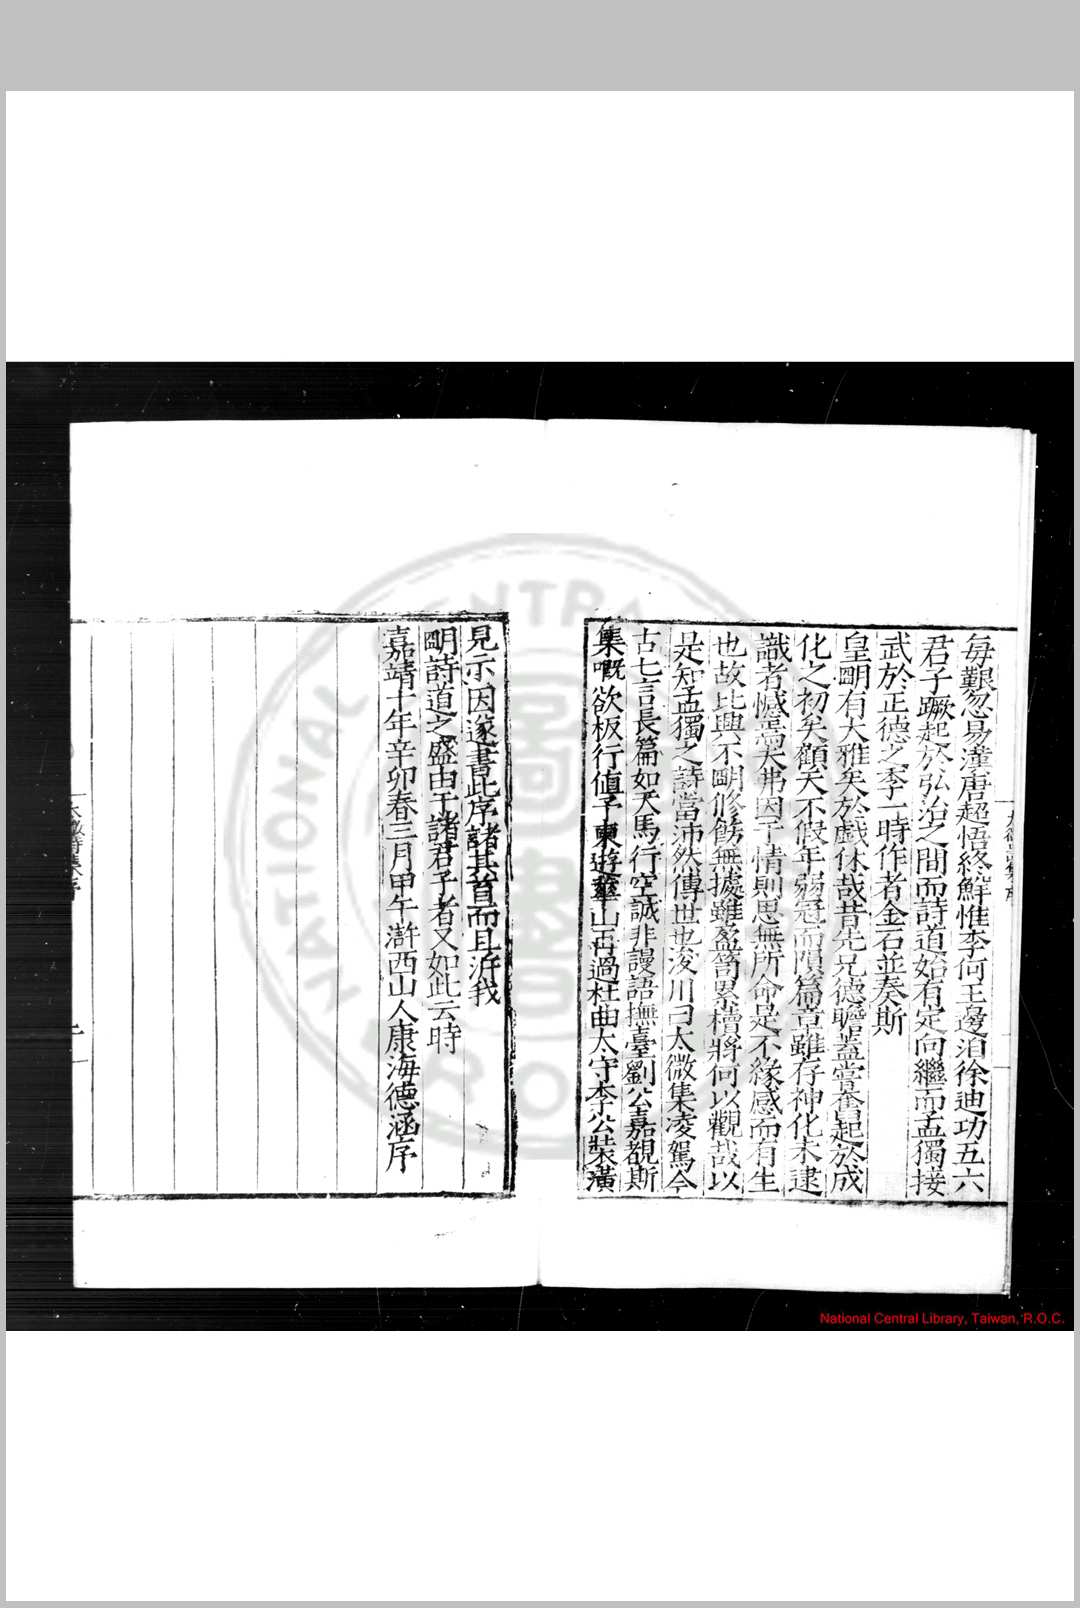 每艱忽易潼唐超悟終鮮惟李何王邊洎徐迪功五六
君子蹶起於弘治之間而詩道始有定向繼而孟獨接
武於正德之季一時作者金石並奏斯
皇眀有大雅矣於戲休哉昔先兄德瞻蓋嘗奮起於成
化之初矣顧天不假年弱冠而隕篇章雖存神化未逮
識者憾焉夫弗因于情則思無所命是不緣感而有生
也故比興不眀修飭無據雖盈笥累積將何以觀哉以
是知孟獨之詩當沛然傳世也浚川曰太微集凌駕今
古七言長篇如天馬行空誠非謾語撫臺劉公嘉覩斯
集嘅欲板行值予東遊華山再過杜曲太守李公裝潢
見示因遂書此序諸其首而且泝我
眀詩道之盛由于諸君子者又如此云時
嘉靖十年辛卯春三月甲午滸西山人康海德涵序
太微詩集序
National Central Library, Taiwan, R.O.C.